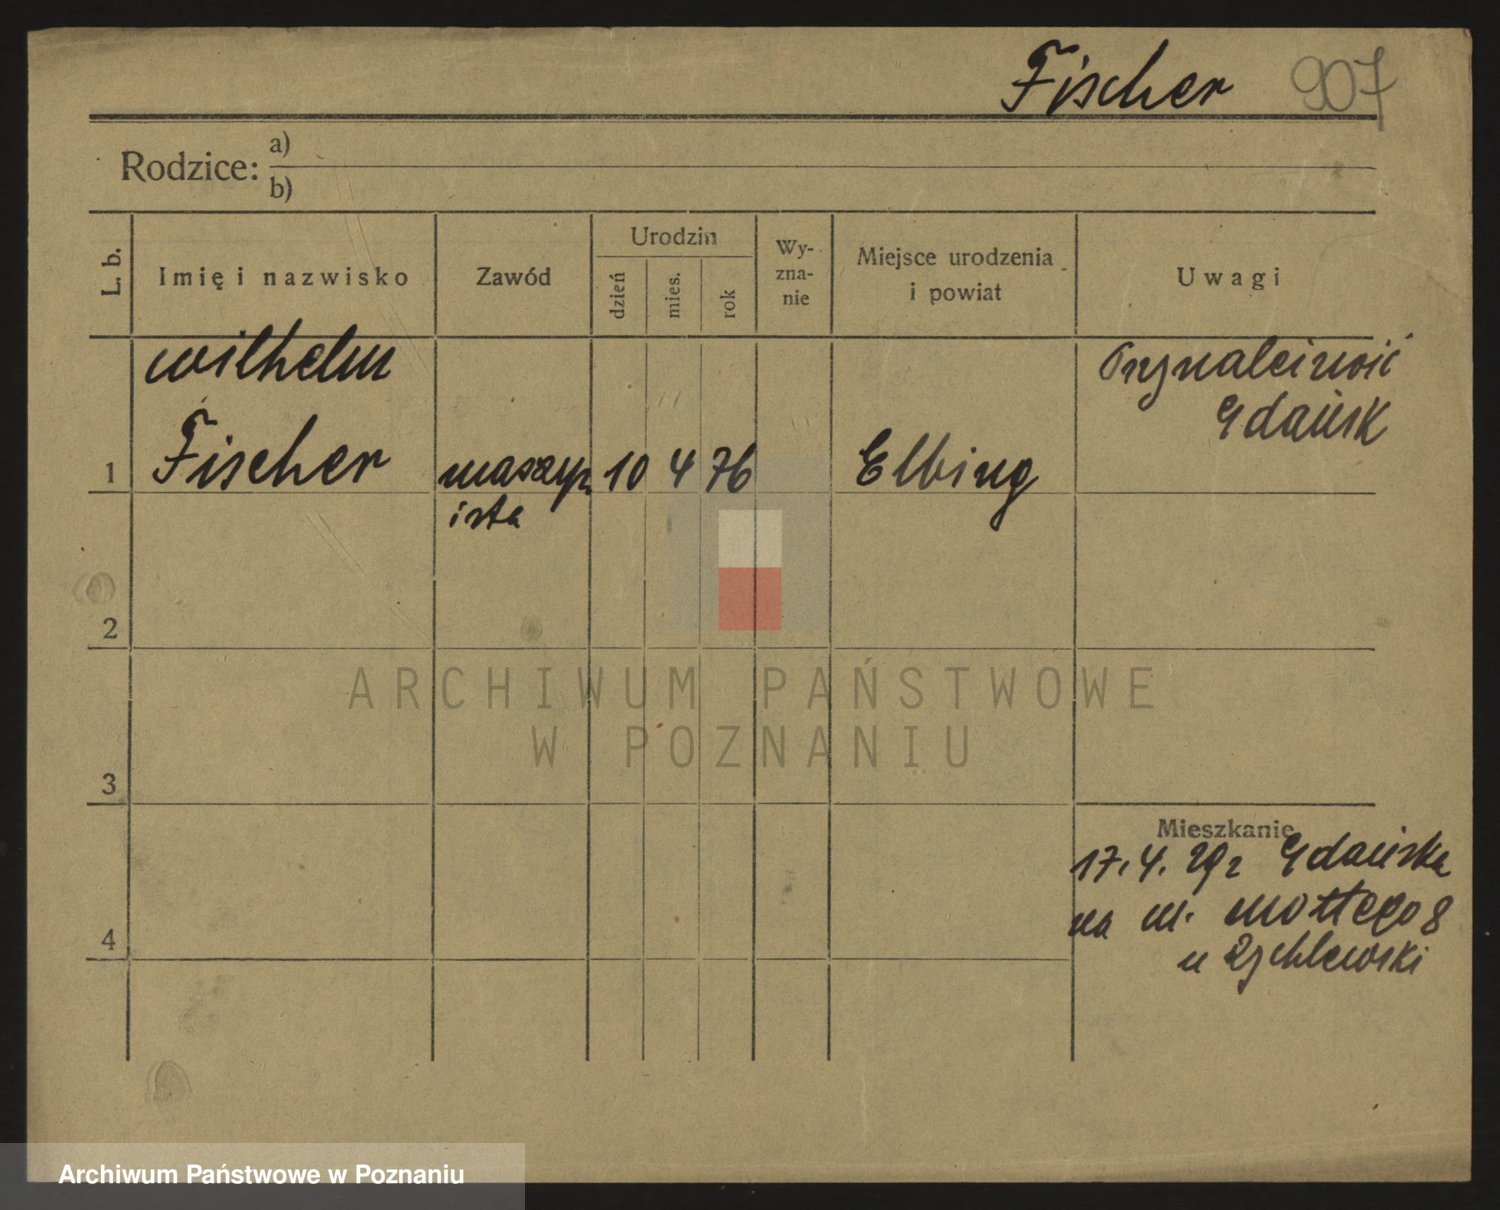 Fischer 907
Rodzice: a)
b)
L. b.
Imię i nazwisko
Zawód
Urodzin
dzień
mies.
rok
Wy-
zna-
nie
Miejsce urodzenia
i powiat
Uwagi
Wilhelm
1 Fischer maszyn 10 4 76 Elbing
ista
Gdańsk
2
3
4
Mieszkanie
17.4.29 z Gdańska
na m. Mottego 8
u Rychlewski
ARCHIWUM PAŃSTWOWE
W POZNANIU
Archiwum Państwowe w Poznaniu